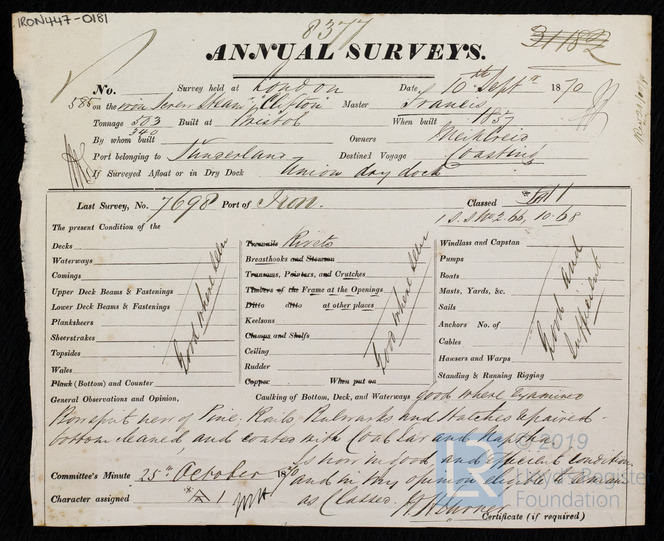 IRON447-0181
8377
31182
ANNUAL SURVEYS.
No. Survey held at London Date, 10th Septr 1870
588 on the iron Screw Steamr Clifton Master Francis
Tonnage 583 Built at Bristol When built 1857
340
By whom built Owners
Port belonging to Sunderland Destined Voyage Coasting
If Surveyed Afloat or in Dry Dock Union dry dock
Last Survey, No. 7698 Port of Iron. Classed A 1
1 S.S. No 2.66, 10.68
The present Condition of the
Decks
Waterways
Comings
Upper Deck Beams & Fastenings
Lower Deck Beams & Fastenings
Planksheers
Sheerstrakes
Topsides
Wales
Plank (Bottom) and Counter
Good where seen
Treenails Rivets
Breasthooks and Stemson
Transoms, Pointers, and Crutches
Timbers of the Frame at the Openings
Ditto ditto at other places
Keelsons
Clamps and Shelfs
Ceiling
Rudder
Copper When put on
Good where seen
Windlass and Capstan
Pumps
Boats
Masts, Yards, &c.
Sails
Anchors No. of
Cables
Hawsers and Warps
Standing & Running Rigging
Good and
sufficient
General Observations and Opinion, Caulking of Bottom, Deck, and Waterways good where Examined
Bowsprit new of Pine, Rails, Bulwarks and Hatches repaired.
bottom cleaned, and coated with Coal Tar and Naptha,
Is now in good, and efficient Condition
Committee's Minute 25th October 1870 and in my opinion eligible to remain
Character assigned A 1 as Classed.
Certificate (if required)
© 2019
LR
Lloyd's Register
Foundation